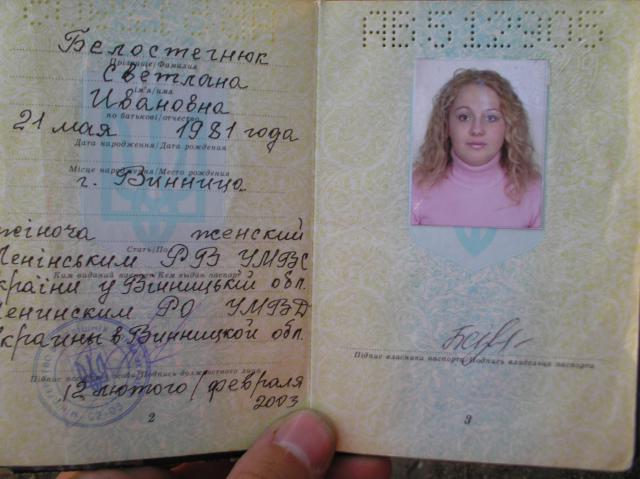 Белостегнюк
Прізвище/Фамилия
Светлана
ім'я/имя
Ивановна
по батькові/отчество
21 мая 1981 года
Дата народження/Дата рождения
Місце народження/Место рождения
г. Винница
жіноча женский
Стать/По
Ленінським РВ УМВС
Ким виданий паспорт/Кем выдан паспорт
країни у Вінницькій обл.
Ленинским РО УМВД
Украины в Винницкой обл.
Підпис посадової особи/Подпись должностного лица
12 лютого/февраля
2003
2
АВ512905
Підпис власника паспорта/Подпись владельца паспорта
3